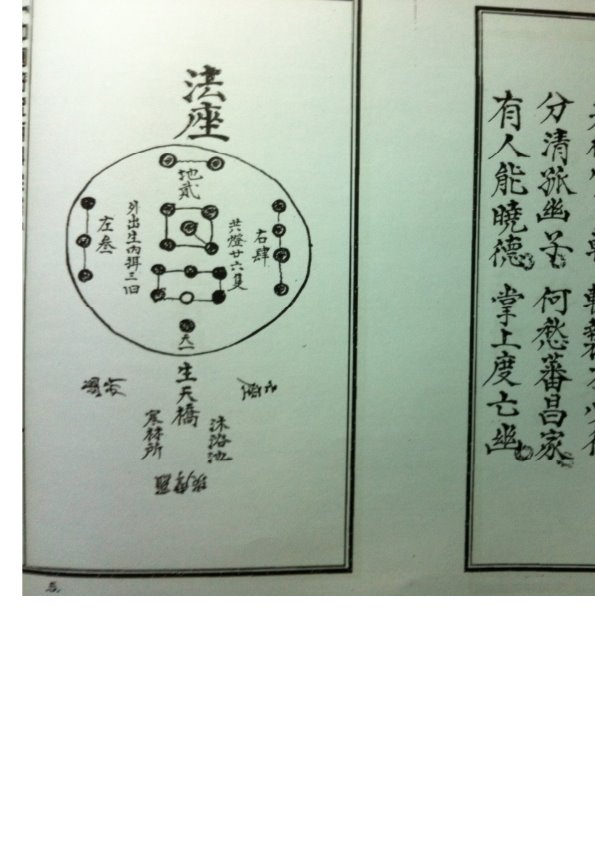 分清孤幽苦 何愁蕃昌家
有人能曉德 掌上度亡幽
法座
地貳
右肆
共燈廿六隻
左叁
天一
生天橋
沐浴池
寒林所